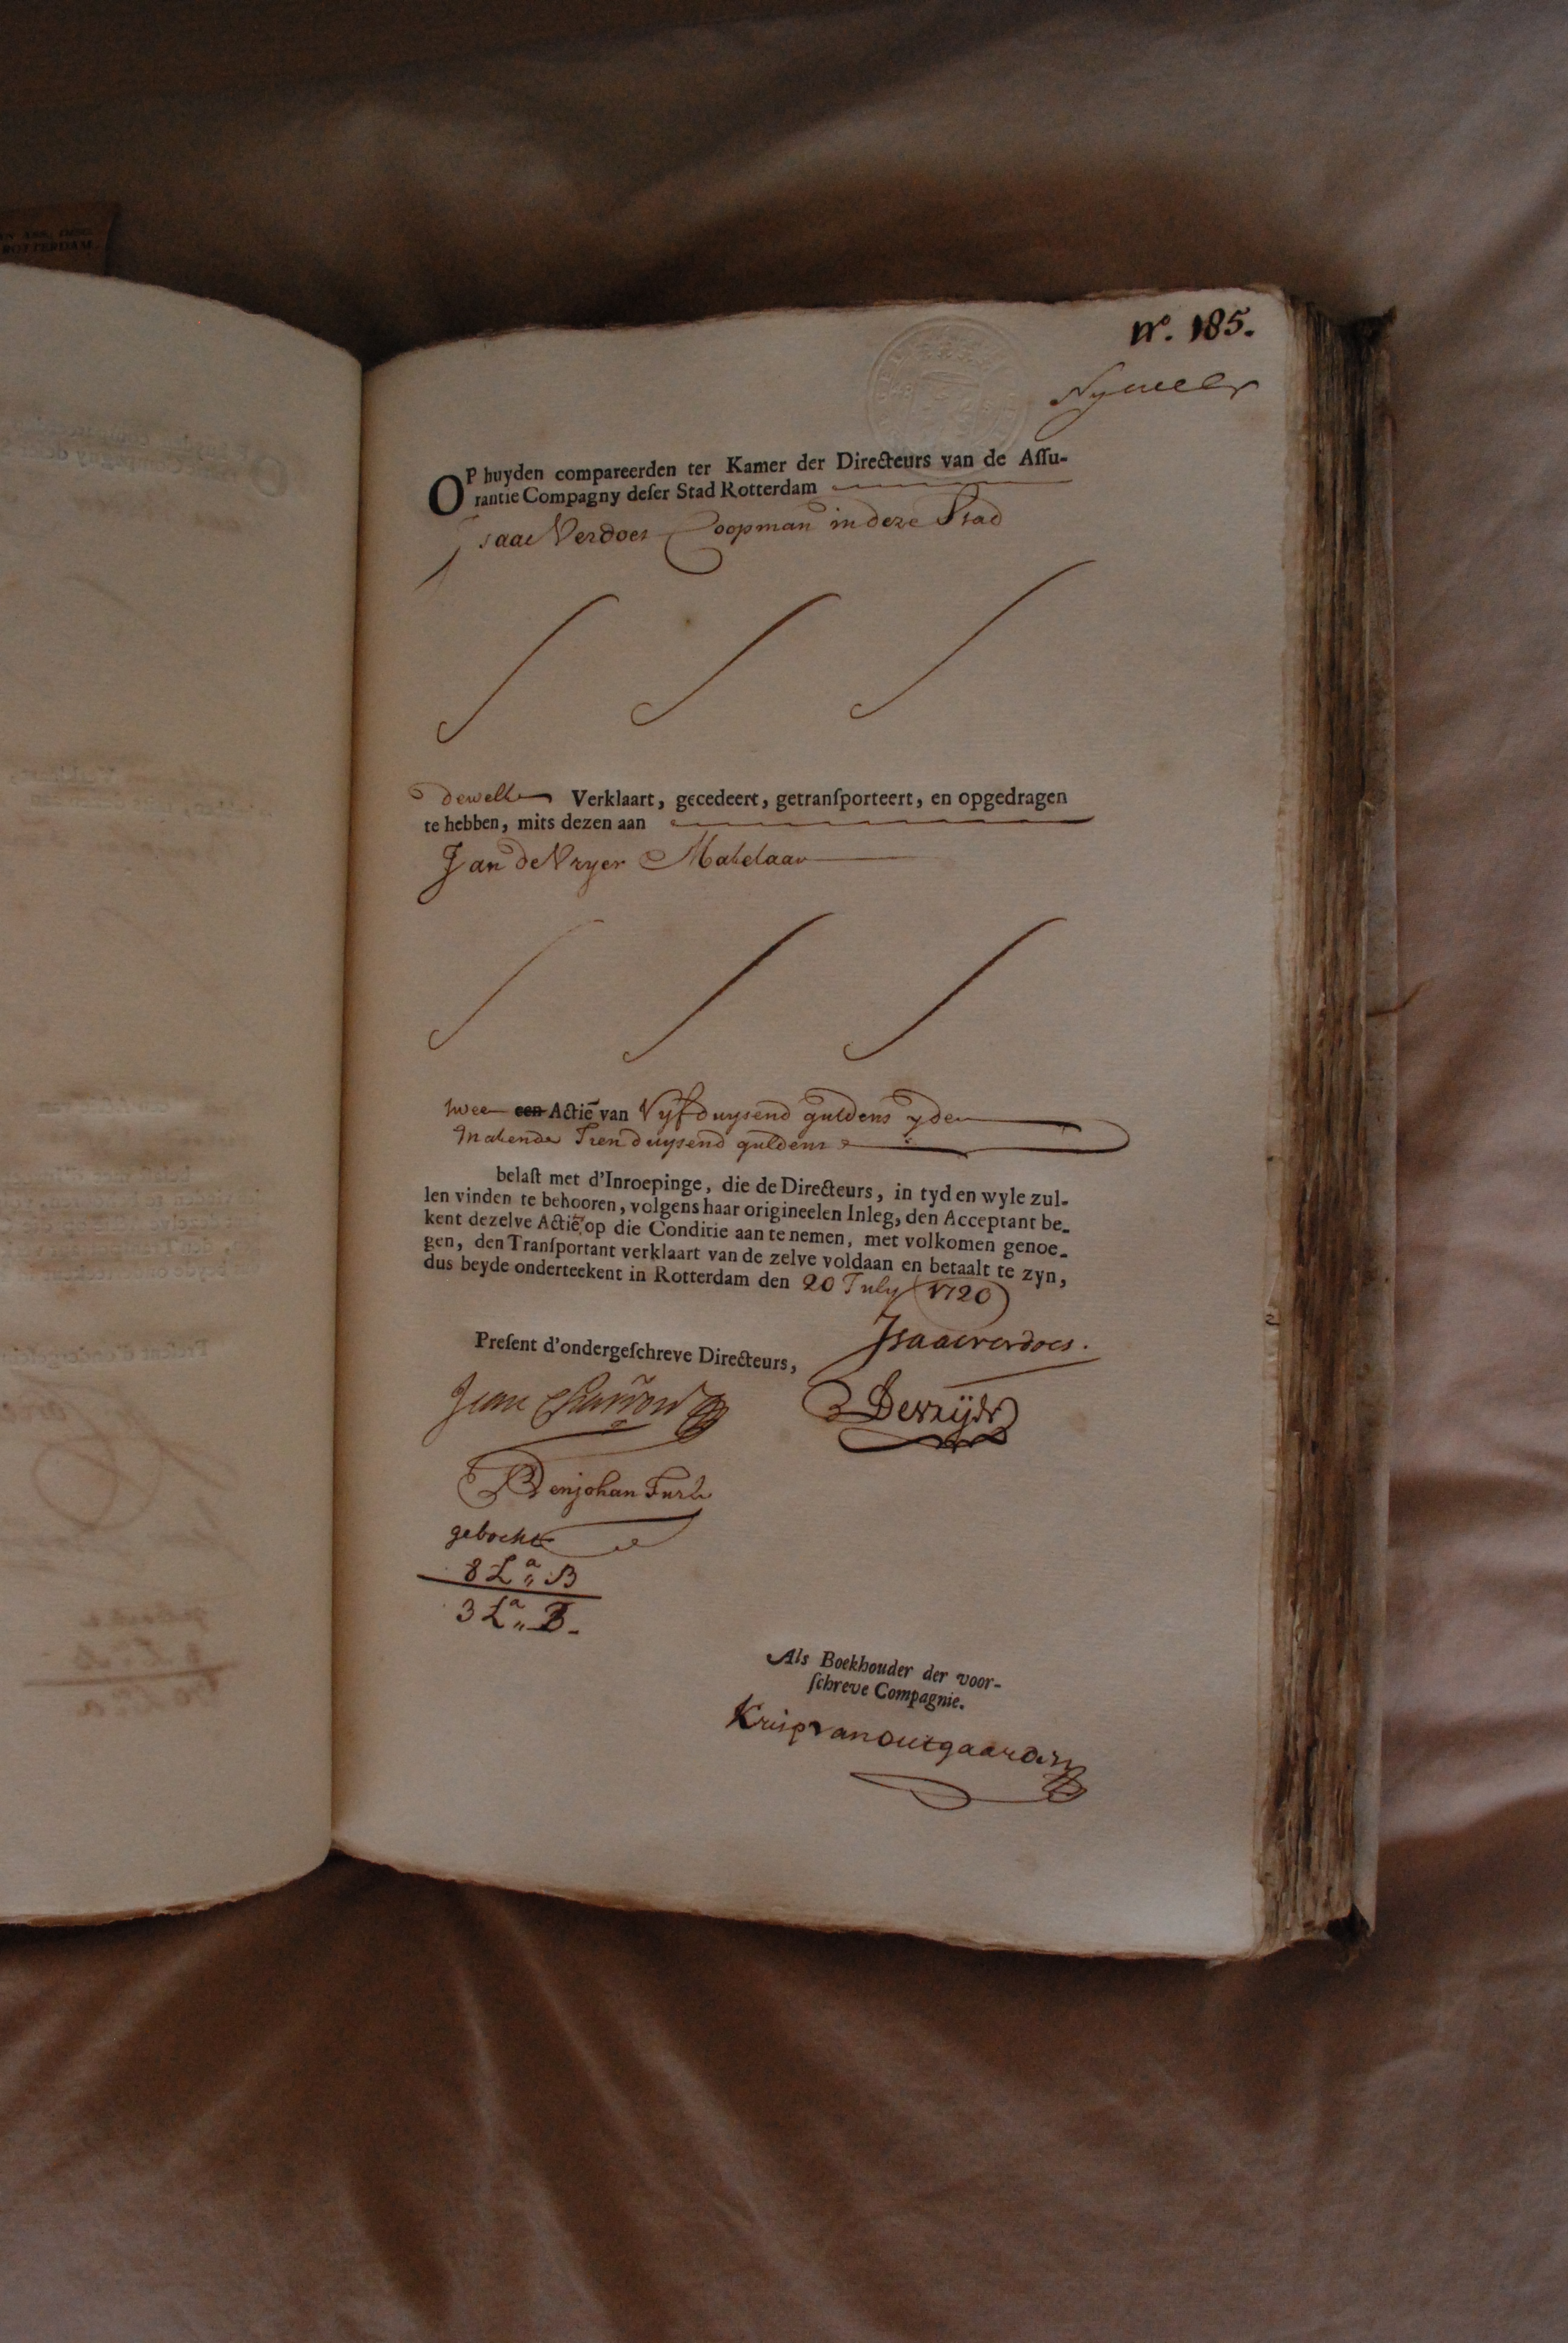 ROTTERDAM.
Nº. 185.
OP huyden compareerden ter Kamer der Directeurs van de Aſſu-
rantie Compagny deſer Stad Rotterdam
Isaac Verdoes Coopman in deze Stad
dewelke Verklaart, gecedeert, getranſporteert, en opgedragen
te hebben, mits dezen aan
Jan de Vryer Makelaar
twee een Actiē van Vyfduysend guldens yder
Makende Tien duysend guldens
belaſt met d'Inroepinge, die de Directeurs, in tyd en wyle zul-
len vinden te behooren, volgens haar origineelen Inleg, den Acceptant be-
kent dezelve Actiē op die Conditie aan te nemen, met volkomen genoe-
gen, den Tranſportant verklaart van de zelve voldaan en betaalt te zyn,
dus beyde onderteekent in Rotterdam den 20 July 1720
Isaac verdoes.
Preſent d'ondergeſchreve Directeurs,
Jean
Benjohan Furly
geboekt
8 Lª „ B
3 Lª „ B.
Als Boekhouder der voor-
ſchreve Compagnie.
Krisp van outgaarden